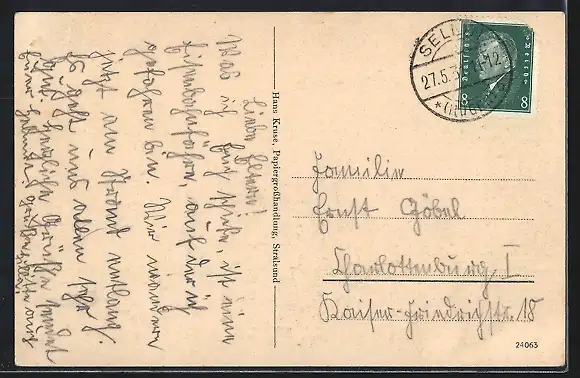 Liebe Eltern!
Was ich Euch schreibe, ist eine
Eisenbahnfähre, auf der ich
gefahren bin. Wir wandern
jetzt am Strand entlang.
Es geht uns allen sehr
gut. Herzliche Grüße sendet
Hans Kruse, Papiergroßhandlung, Stralsund
SELL
27.5.3 12
*(Rü
Deutsches Reich
8 8
Familie
Ernst Göbel
Charlottenburg I
Kaiser-Friedrichstr. 18
24063